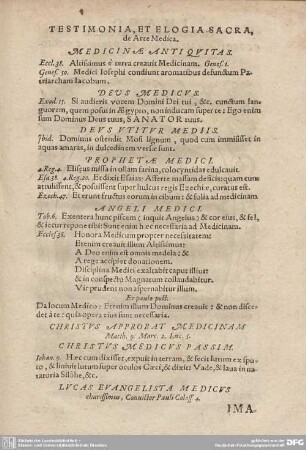 TESTIMONIA, ET ELOGIA SACRA,
de Arte Medica.
MEDICINÆ ANTIQVITAS.
Eccl.38. Altissimus è terra creauit Medicinam. Genes. 1.
Genes. 50. Medici Iosephi condiunt aromatibus defunctum Pa-
triarcham Iacobum.
DEUS MEDICUS.
Exod.15. Si audieris vocem Domini Dei tui, &c. cunctum lan-
guorem, quem posui in Ægypto, non inducam super te: Ego enim
sum Dominus Deus tuus, SANATOR tuus.
DEVS VTITVR MEDIIS.
Ibid. Dominus ostendit Mosi lignum, quod cum immisisset in
aquas amaras, in dulcedinem versæ sunt.
PROPHETÆ MEDICI.
4.Reg.4. Elisæus missa in ollam farina, colocynthidas edulcauit.
Esa.38. 4.Reg.20. Et dixit Esaias: Afferte massam deficis: quam cum
attulissent, & posuissent super hulcus regis Ezechiæ, curatus est.
Ezech.47. Et erunt fructus eorum in cibum: & folia ad medicinam
ANGELI MEDICI.
Tob.6. Exentera hunc piscem (inquit Angelus) & cor eius, & fel,
& iecur repone tibi: Sunt enim hæc necessaria ad Medicinam.
Eccles.38. Honora Medicum propter necessitatem:
Etenim creauit illum Altissimus:
A Deo enim est omnis medela: &
A rege accipiet donationem.
Disciplina Medici exaltabit caput illius:
& in conspectu Magnatum collaudabitur.
Vir prudens non aspernabitur illum.
Et paulo post:
Da locum Medico: Etenim illum Dominus creauit: & non disce-
det à te: quia opera eius sunt necessaria.
CHRISTVS APPROBAT MEDICINAM
Matth. 9. Marc. 2. Luc. 5.
CHRISTVS MEDICVS PASSIM.
Iohan. 9. Hæc cum dixisset, expuit in terram, & fecit lutum ex spu-
to, & liniuit lutum super oculos Cæci, & dixit: Vade, & laua in na-
tatoria Silohe, &c.
LVCAS EVANGELISTA MEDICVS
charissimus, Conuictor Pauli Coloss. 4.
IMA-